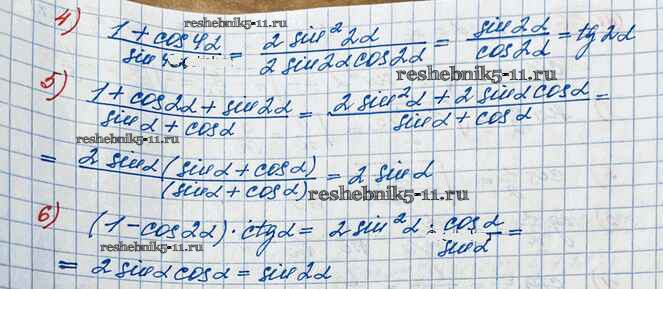 4) (1 + cos4α)/(sin4α) = (2 sin²2α)/(2 sin2α cos2α) = (sin2α)/(cos2α) = tg 2α
reshebnik5-11.ru
reshebnik5-11.ru
5) (1 + cos2α + sin2α)/(sinα + cosα) = (2 sin²α + 2 sinα cosα)/(sinα + cosα) =
reshebnik5-11.ru
= (2 sinα (sinα + cosα))/((sinα + cosα)) = 2 sinα
reshebnik5-11.ru
6) (1 - cos2α) · ctgα = 2 sin²α · (cosα)/(sinα) =
reshebnik5-11.ru
= 2 sinα cosα = sin2α